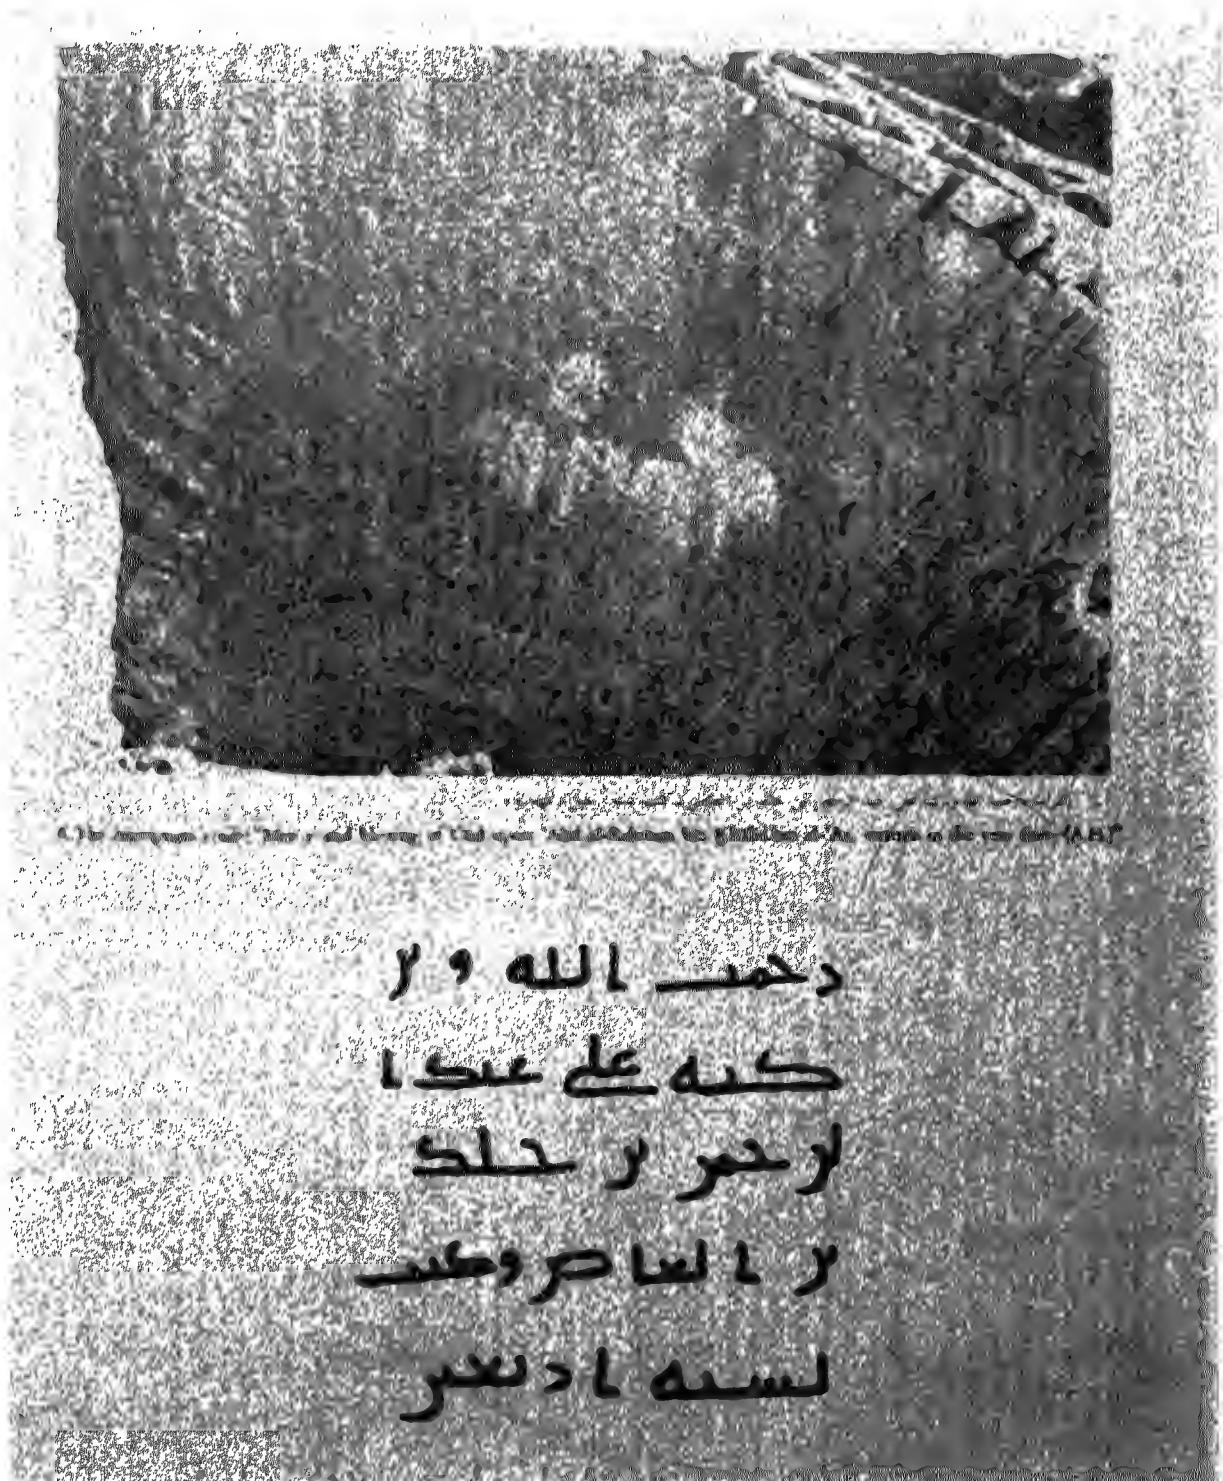 رحمت الله وبر
كته على عبد ا
لرحمن بن خلد
بن العاص وكتب
لسنة اربعين